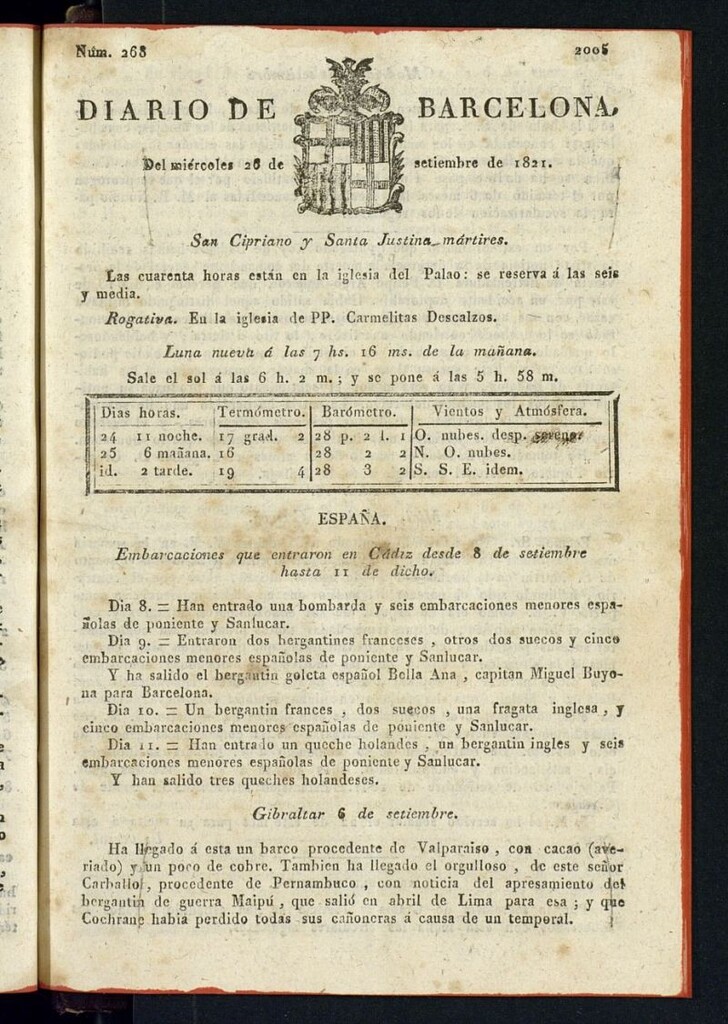 Núm. 268 2005
DIARIO DE BARCELONA,
Del miércoles 26 de setiembre de 1821.
San Cipriano y Santa Justina mártires.
Las cuarenta horas están en la iglesia del Palao: se reserva á las seis
y media.
Rogativa. En la iglesia de PP. Carmelitas Descalzos.
Luna nueva á las 7 hs. 16 ms. de la mañana.
Sale el sol á las 6 h. 2 m.; y se pone á las 5 h. 58 m.
Dias horas. Termómetro. Barómetro. Vientos y Atmósfera.
24 11 noche. 17 grad. 2 28 p. 2 l. 1 O. nubes. desp.
25 6 mañana. 16 28 2 2 N. O. nubes.
id. 2 tarde. 19 4 28 3 2 S. S. E. idem.
ESPAÑA.
Embarcaciones que entraron en Cádiz desde 8 de setiembre
hasta 11 de dicho.
Dia 8. = Han entrado una bombarda y seis embarcaciones menores espa-
ñolas de poniente y Sanlucar.
Dia 9. = Entraron dos bergantines franceses, otros dos suecos y cinco
embarcaciones menores españolas de poniente y Sanlucar.
Y ha salido el bergantin goleta español Bella Ana, capitan Miguel Buyo-
na para Barcelona.
Dia 10. = Un bergantin frances, dos suecos, una fragata inglesa, y
cinco embarcaciones menores españolas de poniente y Sanlucar.
Dia 11. = Han entrado un queche holandes, un bergantin ingles y seis
embarcaciones menores españolas de poniente y Sanlucar.
Y han salido tres queches holandeses.
Gibraltar 6 de setiembre.
Ha llegado á esta un barco procedente de Valparaiso, con cacao (ave-
riado) y un poco de cobre. Tambien ha llegado el orgulloso, de este señor
Carballo, procedente de Pernambuco, con noticia del apresamiento del
bergantin de guerra Maipú, que salió en abril de Lima para esa; y que
Cochrane habia perdido todas sus cañoneras á causa de un temporal.